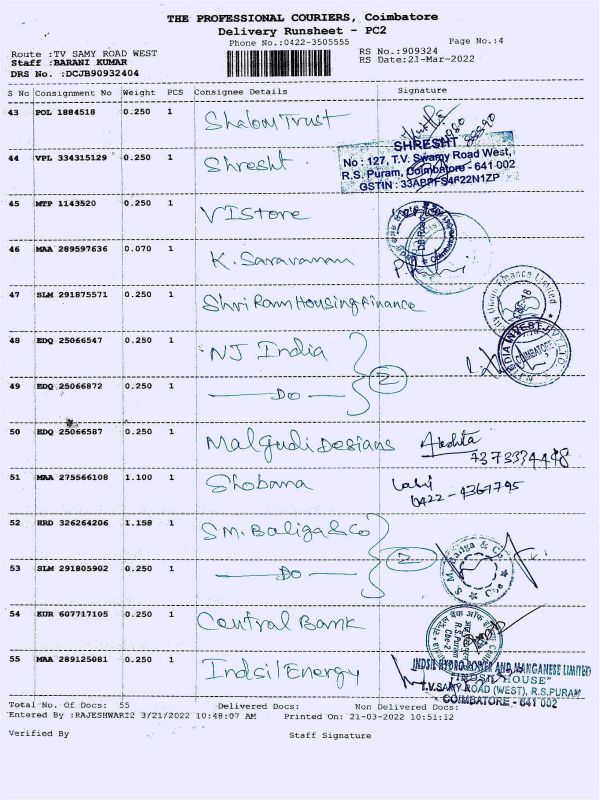 THE PROFESSIONAL COURIERS, Coimbatore
Delivery Runsheet - PC2
Phone No.:0422-3505555 Page No.:4
Route :TV SAMY ROAD WEST RS No.:909324
Staff :BARANI KUMAR RS Date:21-Mar-2022
DRS No. :DCJB90932404
S No Consignment No Weight PCS Consignee Details Signature
43 POL 1884518 0.250 1 Shalom Trust
SHRESHT
No : 127, T.V. Swamy Road West,
44 VPL 334315129 0.250 1 Shresht
R.S. Puram, Coimbatore - 641 002
GSTIN :
45 MTP 1143520 0.250 1 VIStore
46 MAA 289597636 0.070 1 K. Saravanan
47 SLM 291875571 0.250 1 Shri Ram Housing Finance
48 EDQ 25066547 0.250 1 NJ India
2
49 EDQ 25066872 0.250 1 Do
50 EDQ 25066587 0.250 1 Malgudi Desians
7373334448
51 MAA 275566108 1.100 1 Shobana
0422-4367745
52 HRD 326264206 1.158 1 S M. Baliga & Co
2
53 SLM 291805902 0.250 1 Do
54 KUR 607717105 0.250 1 Central Bank
55 MAA 289125081 0.250 1 Indsil Energy
INDSIL HYDRO POWER AND MANGANESE LIMITED
"INDSIL HOUSE"
T.V.SAMY ROAD (WEST), R.S.PURAM
COIMBATORE - 641 002
Total No. Of Docs: 55 Delivered Docs: Non Delivered Docs:
Entered By :RAJESHWARI2 3/21/2022 10:48:07 AM Printed On: 21-03-2022 10:51:12
Verified By Staff Signature